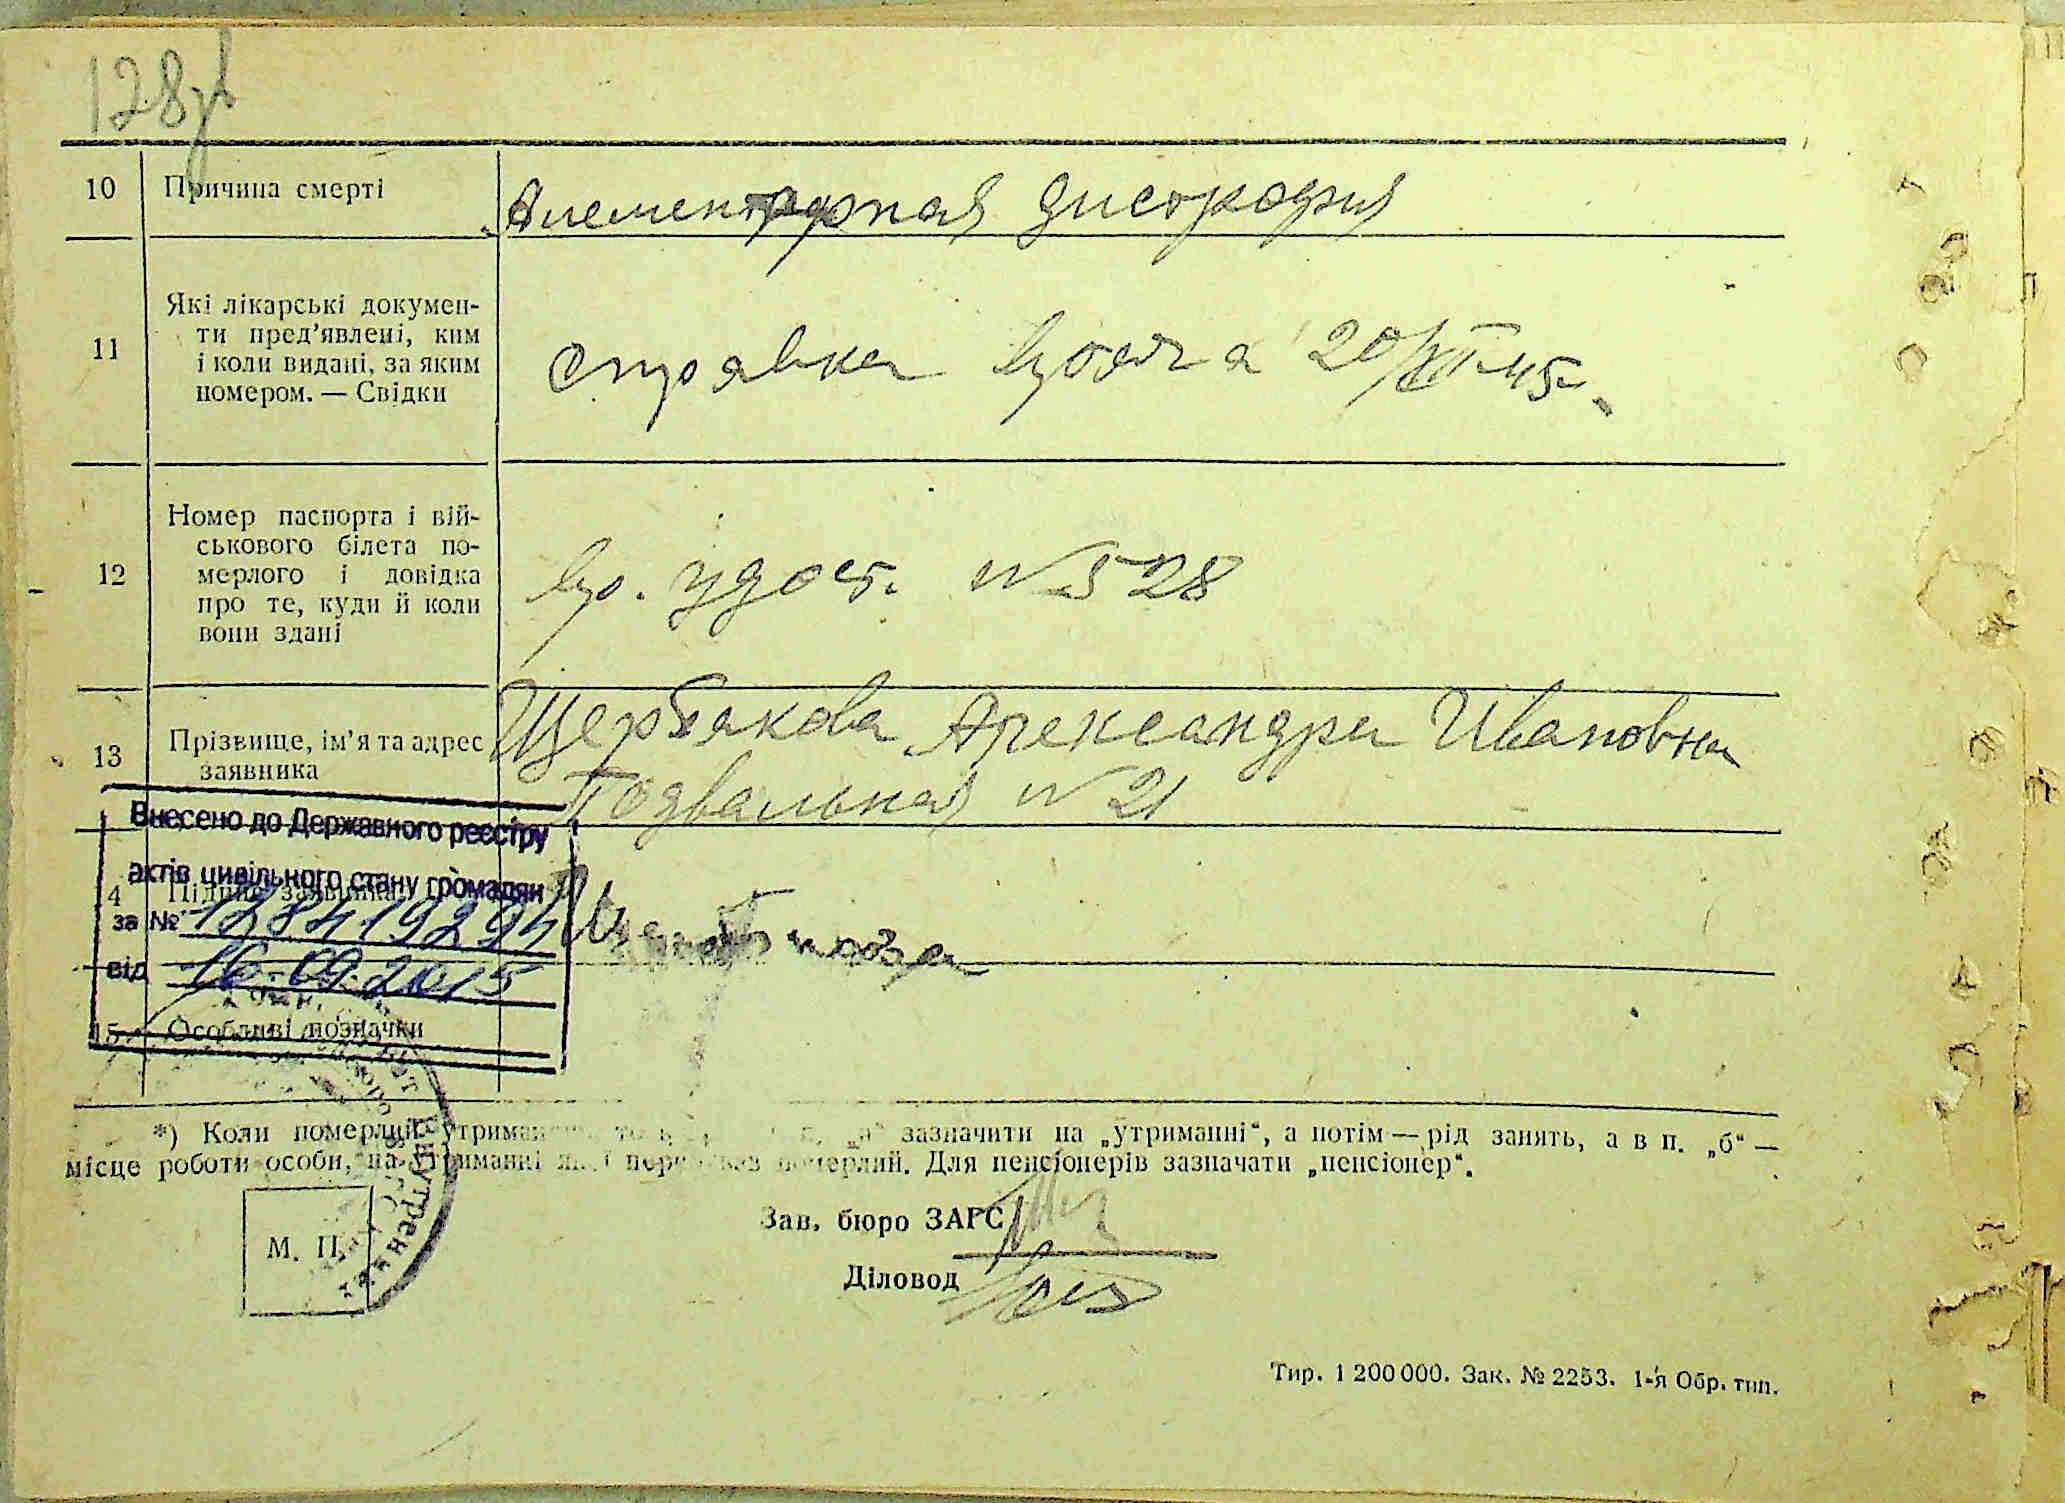 128
10 Причина смерті Алементарная дистрофия
11 Які лікарські докумен-
ти пред’явлені, ким
і коли видані, за яким
номером. — Свідки
справка врача 20/XII-45г.
12 Номер паспорта і вій-
ськового білета по-
мерлого і довідка
про те, куди й коли
вони здані
вр. удост. №528
13 Прізвище, ім’я та адрес
заявника
Щербакова Александра Ивановна
Подвальная №21
Внесено до Державного реєстру
актів цивільного стану громадян
4 Підпис заявника
за № 12841929
від 16.09.2015
15 Особливі позначки
*) Коли померлий зазначити на „утриманні“, а потім — рід занять, а в п. „б“ —
місце роботи особи, на утриманні померлий. Для пенсіонерів зазначати „пенсіонер“.
М. П.
Зав. бюро ЗАГС
Діловод
Тир. 1 200 000. Зак. № 2253. 1-я Обр. тип.